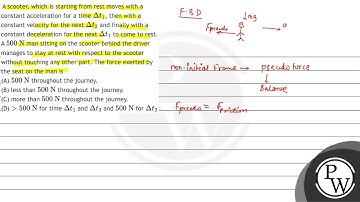 A scooter, which is starting from rest moves with a
constant acceleration for a time Δt₁, then with a
constant velocity for the next Δt₂ and finally with a
constant deceleration for the next Δt₃ to come to rest.
A 500 N man sitting on the scooter behind the driver
manages to stay at rest with respect to the scooter
without touching any other part. The force exerted by
the seat on the man is
(A) 500 N throughout the journey.
(B) less than 500 N throughout the journey.
(C) more than 500 N throughout the journey.
(D) > 500 N for time Δt₁ and Δt₃ and 500 N for Δt₂.
F.B.D
↓mg
Fpseudo
a
non-initial frame → pseudo force
↓
Balance
Fpseudo = Ffriction
PW